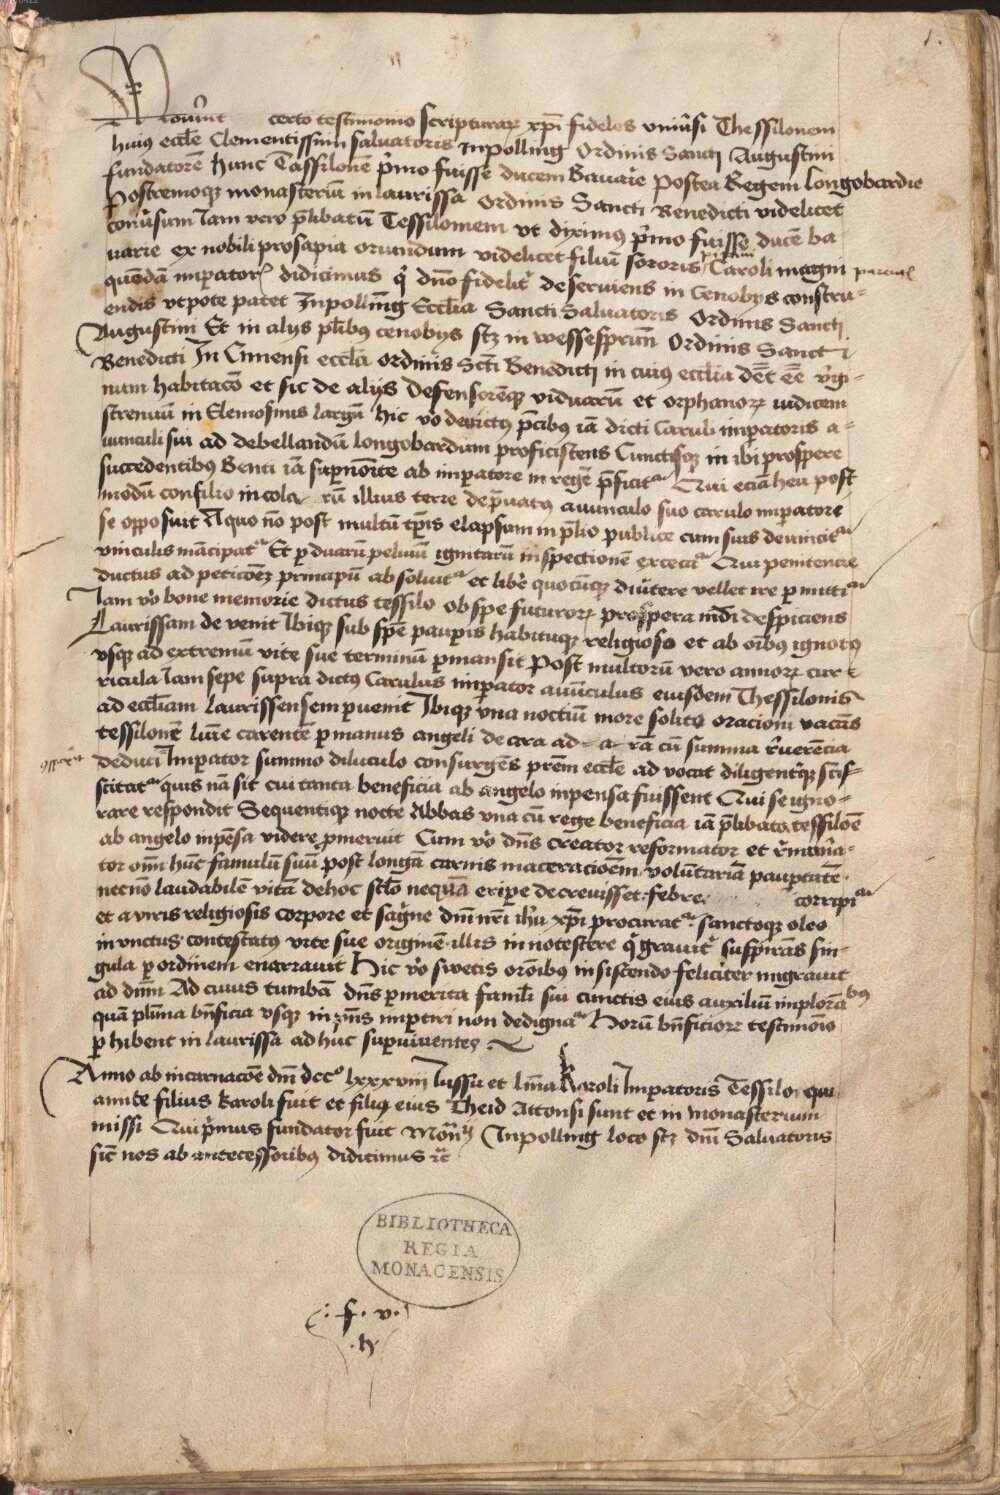 1.
Noverint certo testimonio scripturarꝝ xp̄i fideles vniūsi Thessilonem
huiꝰ ecctīe Clementissimi saluatoris Inpolling Ordinis Sancti Augustini
fundatorē hunc Tassilonē pͥmo fuisse ducem Bauarie postea Regem Longobardie
Postremoqꝫ monasteriū in laurissa Ordinis Sancti Benedicti videlicet
conūsum Iam vero p̄libatū Tessilonem vt diximꝰ pͥmo fuisse ducē ba
uarie ex nobili prosapia oriundum videlicet filiū sororis Caroli magni
quēdā imperatorꝭ didicimus qͥ dn̄o fidelitͥ deseruiens in Cenobijs constru-
endis vtpote patet Inpolling Ecctīa Sancti Saluatoris Ordinis Sancti
Augustini Et in alijs plͥibꝰ cenobijs scꝫ in wessesprun̄ Ordinis Sancti
Benedicti In Cimensi ecctīa ordinis Scti Benedicti in cuiꝰ ecctīa dēt eē vͥgi-
num habitacō et sic de alijs Defensorēqꝫ viduarū et orphanorꝝ iudicem
strenuū in Elemosinis largū hic vͦo deuictus pͥcibꝰ iā dicti Caruli imꝑatoris a-
uunculi sui ad debellandū longobardiam proficistens Cunctisqꝫ in ibi prospere
succedentibꝰ Benti iā suꝑnoīte ab imꝑatore in regē p̄ficitͬ Qui eciā heu post
modū consilio incola rū illius terre dep̄uatꝰ auunculo suo carulo imꝑatore
se opposuit A quo nō post multū tp̄is elapsum in p̄lio publice cum suis deuincitͬ
vinculis mācipatͬ Et ꝑ duarū peluiū ignitarū inspectionē excecatͬ Qui penitencie
ductus ad peticōeꝫ principū absoluitͬ et libē quocūqꝫ diūtere vellet ire ꝑmittitͬ
Iam vͦo bone memorie dictus tessilo ob spe futurorꝝ prospera mūdi despiciens
Laurissam deuenit Ibiqꝫ sub spē pauꝑis habituqꝫ religioso et ab oībꝰ ignotꝰ
vsqꝫ ad extremū vite sue terminū ꝑmansit Post multorū vero annorꝝ cur
ricula Iam sepe supra dictꝰ Carulus imꝑator auūculus eiusdem Thessilonis
ad ecctīam Laurissensem ꝑuenit Ibiqꝫ vna noctiū more solito oracioni vacās
tessilonē lūīe carentē ꝑ manus angeli de ara ad a rā cū summa rͥuerēcia
deduci Imꝑator summo diluculo consurgēs prēm ecctīe ad vocat diligentͥqꝫ scis-
scitatͬ quis nā sit cui tanta beneficia ab angelo inpensa fuissent Qui se igno-
rare respondit Sequentiqꝫ nocte Abbas vna cū rege beneficia iā p̄libata tessiloē
ab angelo inpēsa videre ꝑmeruit Cum vͦo dn̄s creator reformator et rͥmūēa-
tor om̄ hūc famulū suū post longā carnis maceracioēm volūtariā pauꝑtatē
necnō laudabilē vitā dehoc sctō nequā eriꝑe decreuisset febre corripitͬ
et a viris religiosis corpore et sāgͥne dn̄i nr̄i ih̄u xp̄i procuratͬ sanctoqꝫ oleo
in vnctus contestatꝰ vite sue originē illis innotescere qͥ grauitͥ suspirās sin-
gula ꝑ ordinem enarrauit Hic vͦo swetis orōnibꝰ insistendo feliciter migrauit
ad dn̄m Ad cuius tumbā dn̄s ꝑ merita famlͥi sui cunctis eius auxiliū implorātibꝰ
quā plͥma bn̄ficia vsqꝫ in pn̄s imꝑtiri non dedignatͬ Horū bn̄ficiorꝝ testimōio
ꝑhibent in laurissa ad huc suꝑuiuentes
Anno ab incarnacōe dn̄i dccͦ lxxxviij Iussu et lrīa Karoli Imꝑatoris Tessilo qui
amite filius karoli fuit et filiꝰ eius Theid Attonsi sunt et in monasterium
missi Qui pͥmus fundator fuit Mon̄rij Inpolling loco scꝫ dn̄i Saluatoris
sic nos ab antecessoribꝰ didicimus ⁊c̄
BIBLIOTHECA
REGIA
MONACENSIS
.f. v.
.h.